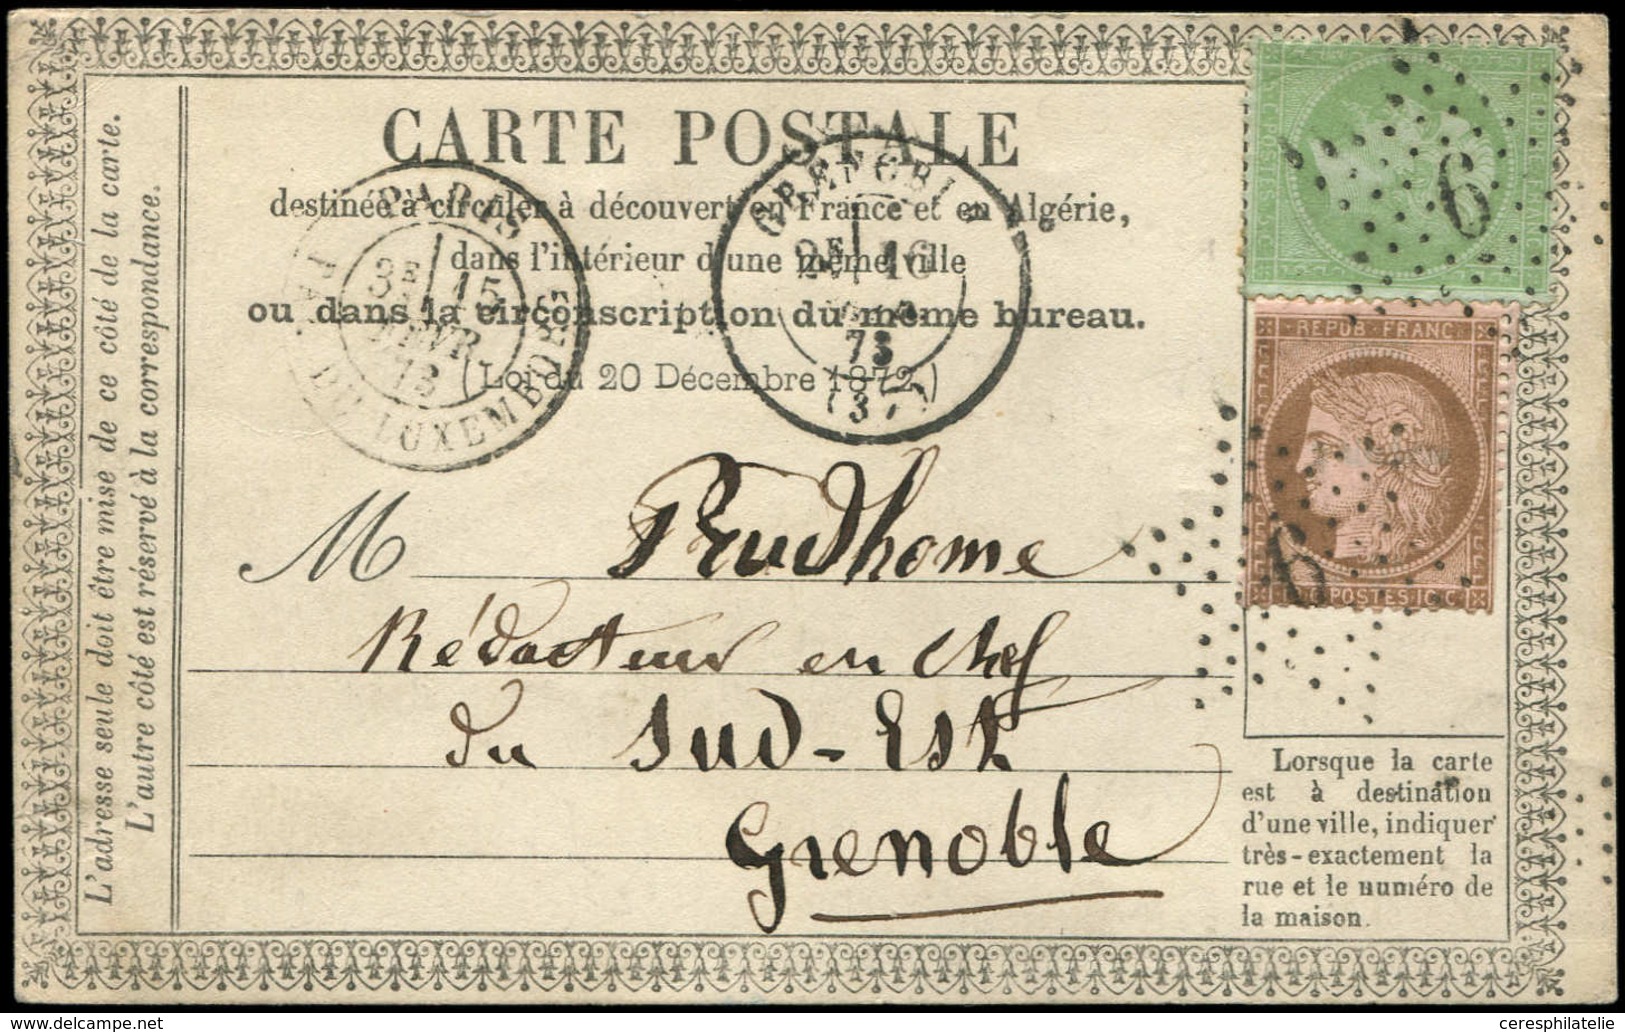 CARTE POSTALE
destinée à circuler à découvert en France et en Algérie,
dans l'intérieur d'une même ville
ou dans la circonscription du même bureau.
(Loi du 20 Décembre 1872.)
L'adresse seule doit être mise de ce côté de la carte.
L'autre côté est réservé à la correspondance.
PARIS
3E 15
FEVR.
73
DU LUXEMBOURG
GRENOBLE
2E 16
73
(37)
6
REPUB · FRANC
POSTES 10 C
6
M Prudhome
Rédacteur en chef
du Sud-Est
Grenoble
Lorsque la carte
est à destination
d'une ville, indiquer
très-exactement la
rue et le numéro de
la maison.
ceresphilatelie